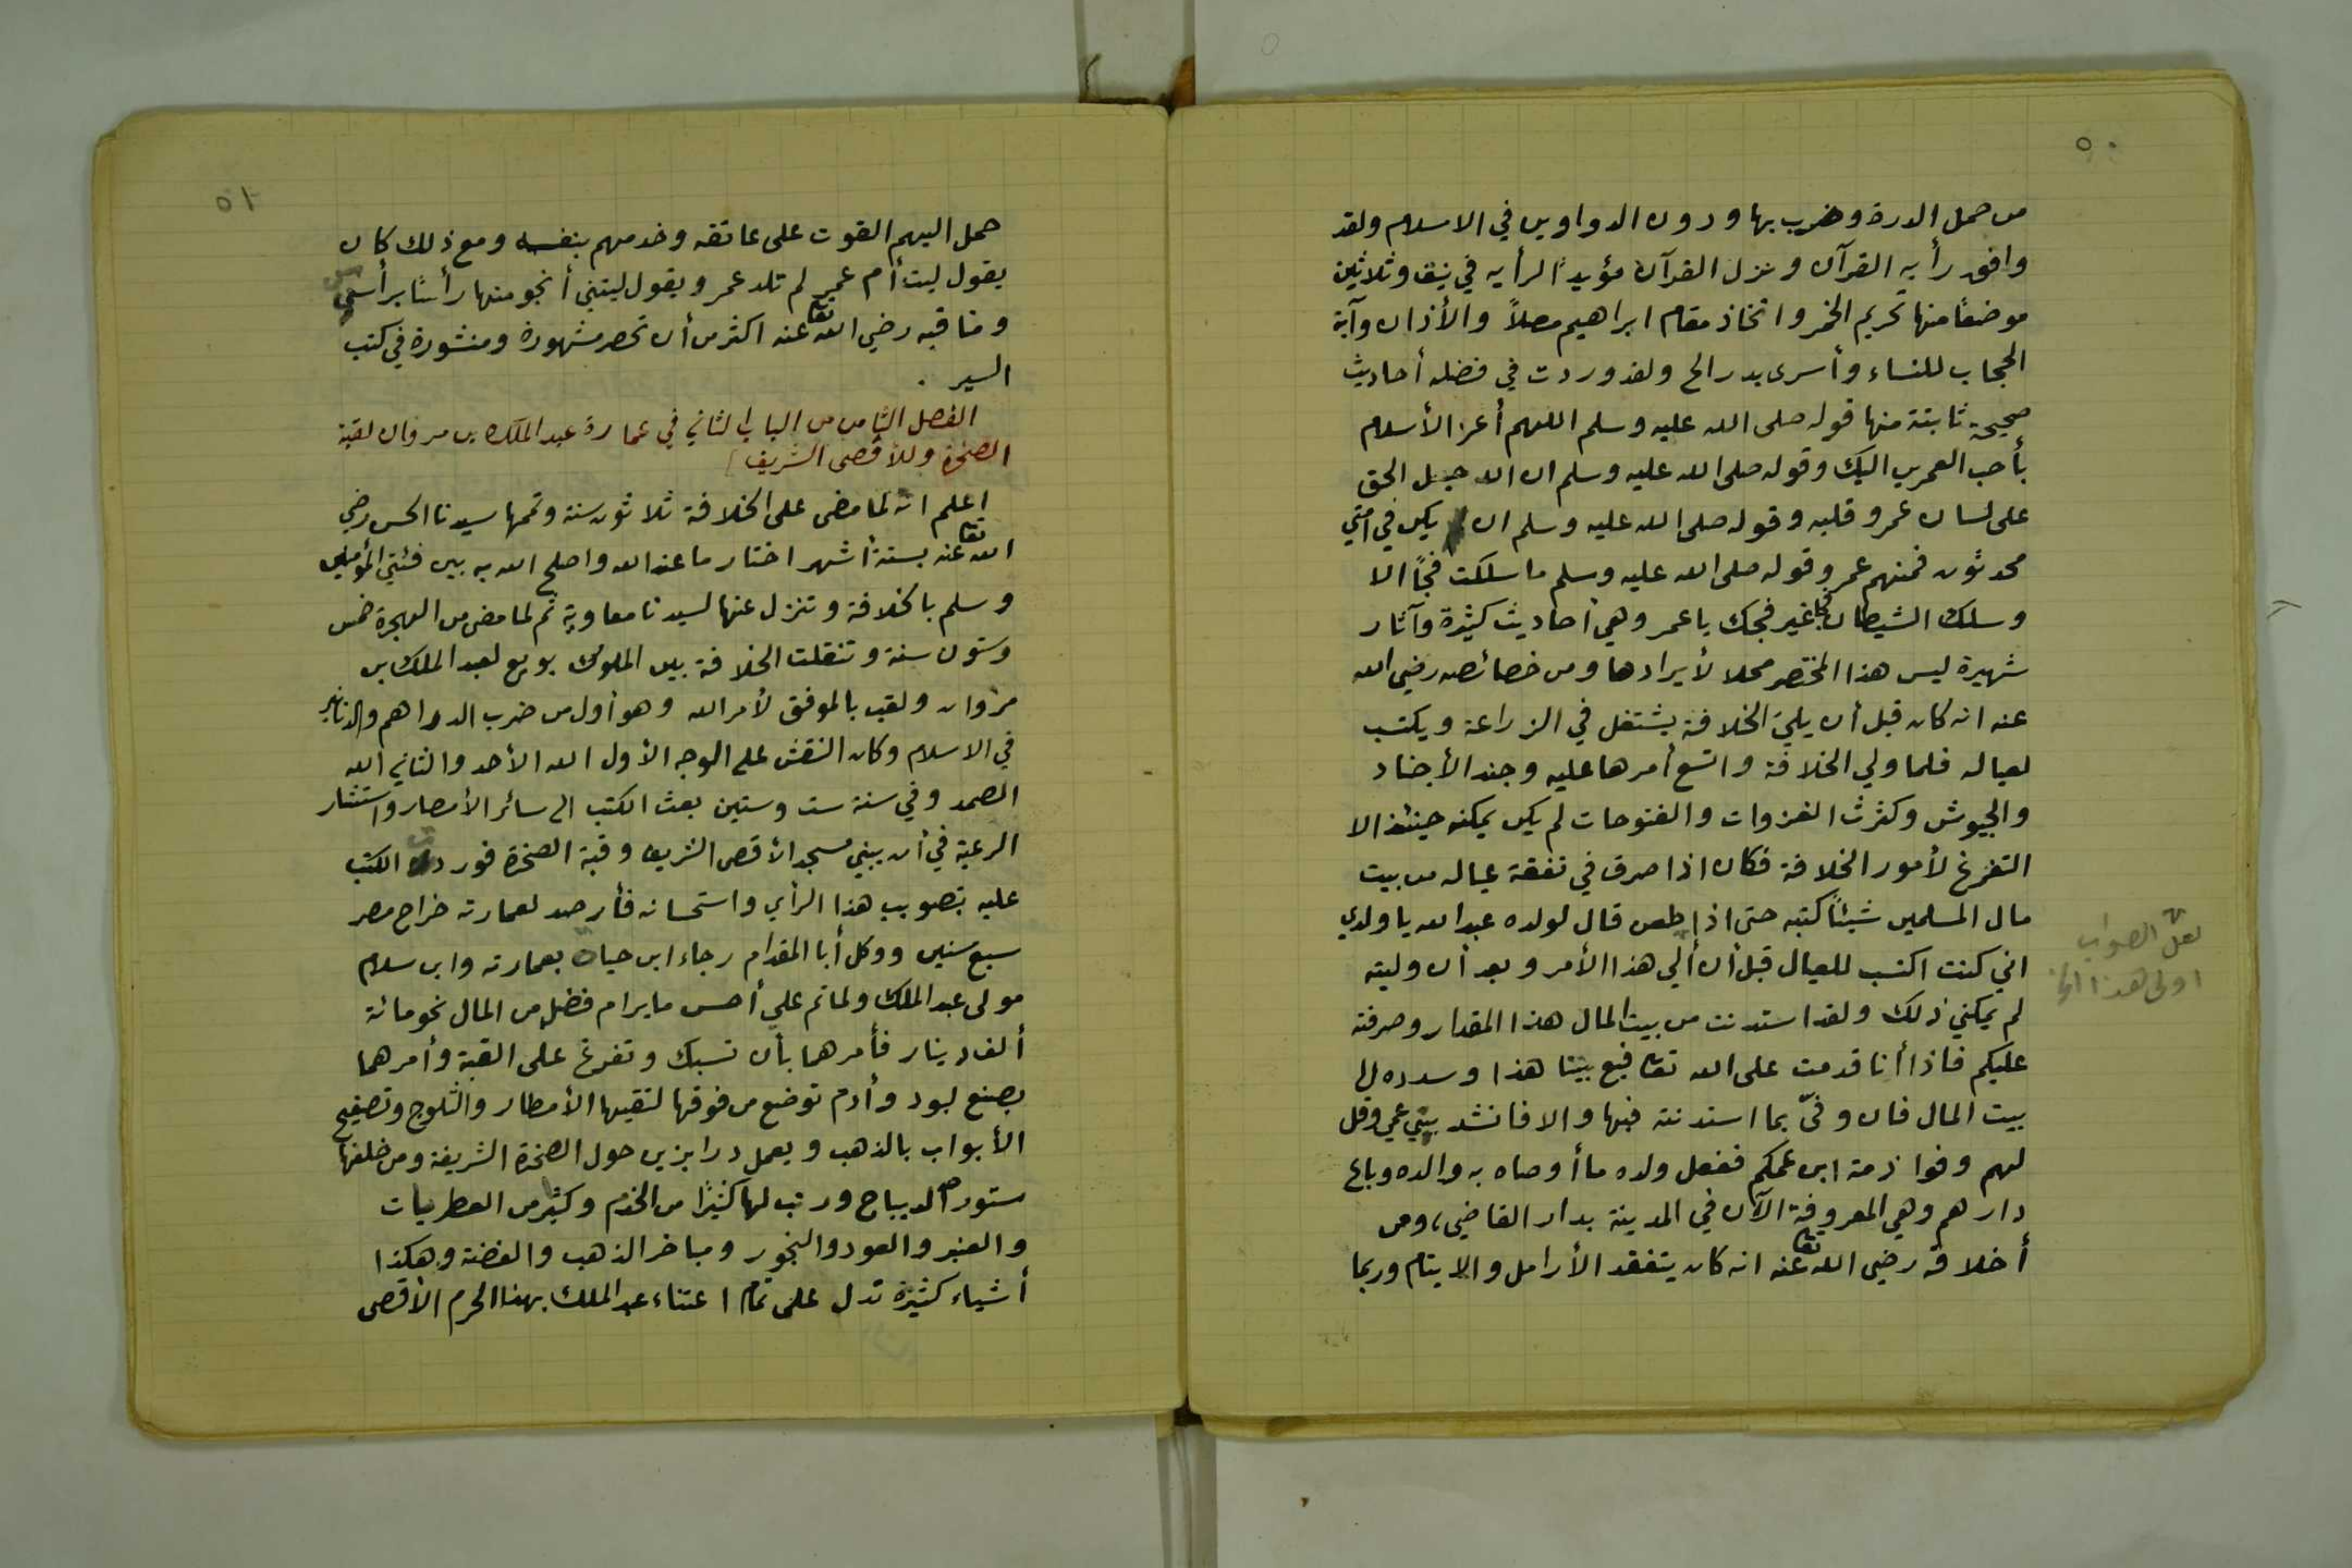 ٥٠
من حمل الدرة وضرب بها ودون الدواوين في الاسلام ولقد
وافق رأيه القرآن ونزل القرآن مؤيداً لرأيه في نيف وثلاثين
موضعاً منها تحريم الخمر واتخاذ مقام ابراهيم مصلاً والأذان وآية
الحجاب للنساء وأسرى بدر الخ ولقد وردت في فضله أحاديث
صحيحة ثابتة منها قوله صلى الله عليه وسلم اللهم أعز الأسلام
بأحب العمرين اليك وقوله صلى الله عليه وسلم ان الله جعل الحق
على لسان عمر وقلبه وقوله صلى الله عليه وسلم ان يكن في امتي
محدثون فمنهم عمر وقوله صلى الله عليه وسلم ما سلكت فجاً الا
وسلك الشيطان فجا غير فجك يا عمر وهي أحاديث كثيرة وآثار
شهيرة ليس هذا المختصر محلا لأيرادها ومن خصائصه رضي الله
عنه انه كان قبل أن يلي الخلافة يشتغل في الزراعة ويكتسب
لعياله فلما ولي الخلافة واتسع أمرها عليه وجند الأجناد
والجيوش وكثرت الغزوات والفتوحات لم يكن يمكنه حينئذ الا
التفرغ لأمور الخلافة فكان اذا صرف في نفقة عياله من بيت
مال المسلمين شيئاً كتبه حتى اذا طعن قال لولده عبد الله يا ولدي
اني كنت اكتسب للعيال قبل أن ألي هذا الأمر وبعد أن وليته
لم يمكني ذلك ولقد استدنت من بيت المال هذا المقدار وصرفته
عليكم فاذا أنا قدمت على الله تعا فبع بيتنا هذا وسدده الى
بيت المال فان وفىّ بما استدنته فبها والا فانشد بيتي عمي وقل
لهم وفوا ذمة ابن عمكم ففعل ولده ما أوصاه به والده وباع
دارهم وهي المعروفة الآن في المدينة بدار القاضي، ومن
أخلاقه رضي الله تعا عنه انه كان يتفقد الأرامل والايتام وربما
لعل الصواب
اولى هذا
٥١
حمل اليهم القوت على عاتقه وخدمهم بنفسه ومع ذلك كان
يقول ليت أم عمر لم تلد عمر ويقول ليتني أنجو منها رأسًا برأس
ومناقبه رضي الله تعا عنه اكثر من أن تحصر مشهورة ومنشورة في كتب
السير .
الفصل الثامن من الباب الثاني في عمارة عبد الملك بن مروان لقبة
الصخرة وللأقصى الشريف
اعلم انه لما مضى على الخلافة ثلاثون سنة وتممها سيدنا الحسن رضي
الله تعا عنه بستة أشهر اختار ما عند الله واصلح الله به بين فئتي المؤمنين
وسلم بالخلافة وتنزل عنها لسيدنا معاوية ثم لما مضى من الهجرة خمس
وستون سنة وتنقلت الخلافة بين الملوك بويع لعبد الملك بن
مروان ولقب بالموفق لأمر الله وهو أول من ضرب الدراهم والدنانير
في الاسلام وكان النقش على الوجه الأول الله الأحد والثاني الله
الصمد وفي سنة ست وستين بعث الكتب الى سائر الأمصار واستشار
الرعية في أن يبني مسجد الأقصى الشريف وقبة الصخرة فوردت الكتب
عليه بتصويب هذا الرأي واستحسانه فأرصد لعمارته خراج مصر
سبع سنين ووكل أبا المقدام رجاء ابن حياة بعمارته وابن سلام
مولى عبد الملك ولما تم على أحسن ما يرام فضل من المال نحو مائة
ألف دينار فأمرهما بأن تسبك وتفرغ على القبة وأمرهما
بصنع لبود وأدم توضع من فوقها لتقيها الأمطار والثلوج وتصفيح
الأبواب بالذهب وبعمل درابزين حول الصخرة الشريفة ومن خلفها
ستور الديباج ورتب لها كثيرًا من الخدم وكثير من العطريات
والعنبر والعود والبخور ومباخر الذهب والفضة وهكذا
أشياء كثيرة تدل على تمام اعتناء عبد الملك بهذا الحرم الأقصى